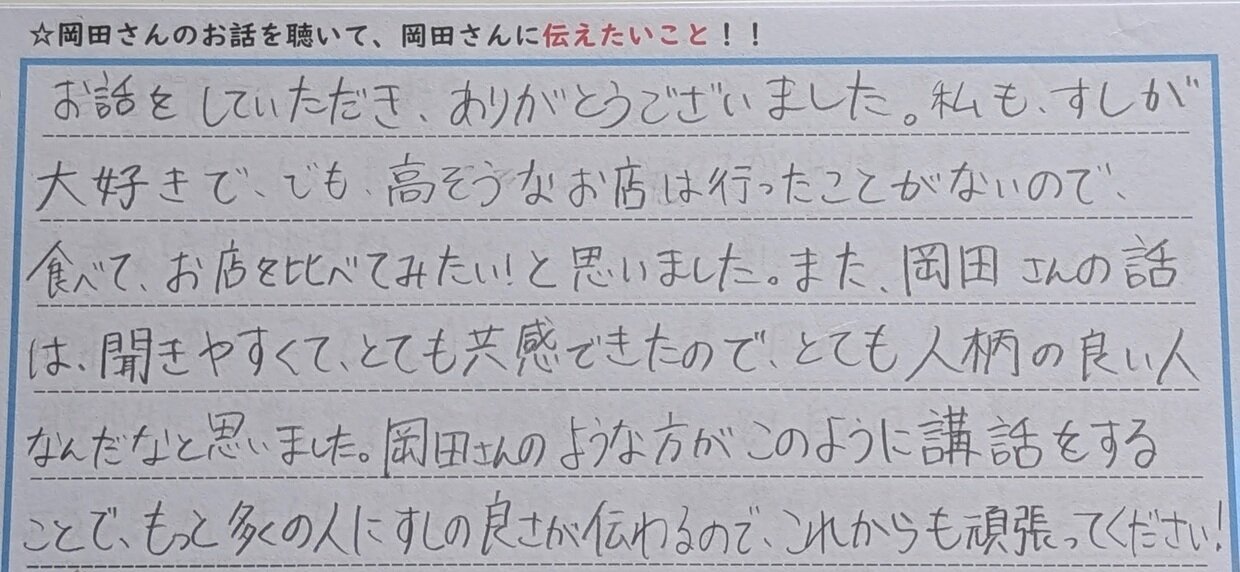 ☆岡田さんのお話を聴いて、岡田さんに伝えたいこと！！
お話をしていただき、ありがとうございました。私も、すしが
大好きで、でも、高そうなお店は行ったことがないので、
食べて、お店を比べてみたい!と思いました。また、岡田さんの話
は、聞きやすくて、とても共感できたので、とても人柄の良い人
なんだなと思いました。岡田さんのような方がこのように講話をする
ことで、もっと多くの人にすしの良さが伝わるので、これからも頑張ってください!